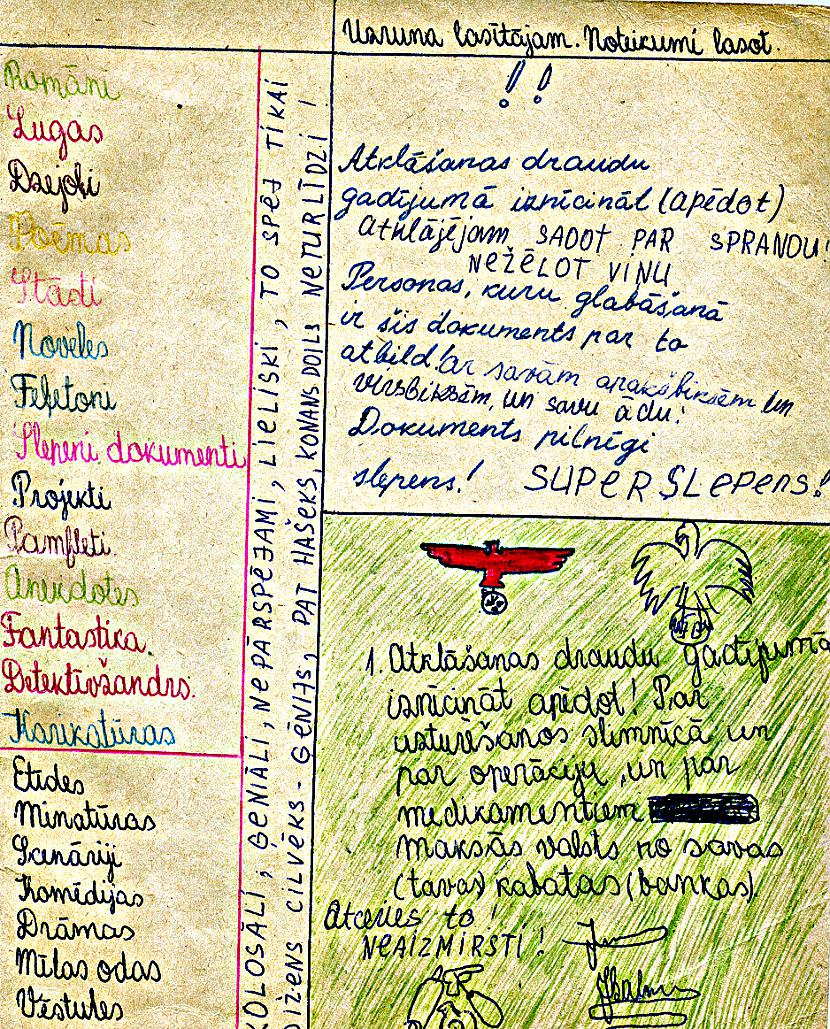 Uzruna lasītājam. Noteikumi lasot.
!!
Romāni
Lugas
Dzejoļi
Poēmas
Stāsti
Noveles
Feļetoni
Slepeni dokumenti
Projekti
Pamfleti.
Anekdotes
Fantastika.
Detektīvžandrs.
Karikatūras
Etides
Minatūras
Scenāriji
Komēdijas
Drāmas
Mīlas odas
Vēstules
KOLOSĀLI, ĢENIĀLI, NEPĀRSPĒJAMI, LIELISKI, TO SPĒJ TIKAI
DIŽENS CILVĒKS - ĢĒNIJS, PAT HAŠEKS, KONANS DOILS NETUR LĪDZI !
Atklāšanas draudu
gadījumā iznīcināt (apēdot)
atklājējam SADOT PAR SPRANDU!
NEŽĒLOT VIŅU
Personas, kuru glabāšanā
ir šis dokuments par to
atbild! ar savām apakšbiksēm un
virsbiksēm, un savu ādu!
Dokuments pilnīgi
slepens! SUPERSLEPENS!
1. Atklāšanas draudu gadījumā
iznīcināt apēdot! Par
uzturēšanos slimnīcā un
par operāciju, un par
medikamentiem
maksās valsts no savas
(tavas) kabatas (bankas).
Atceries to!
NEAIZMIRSTI!